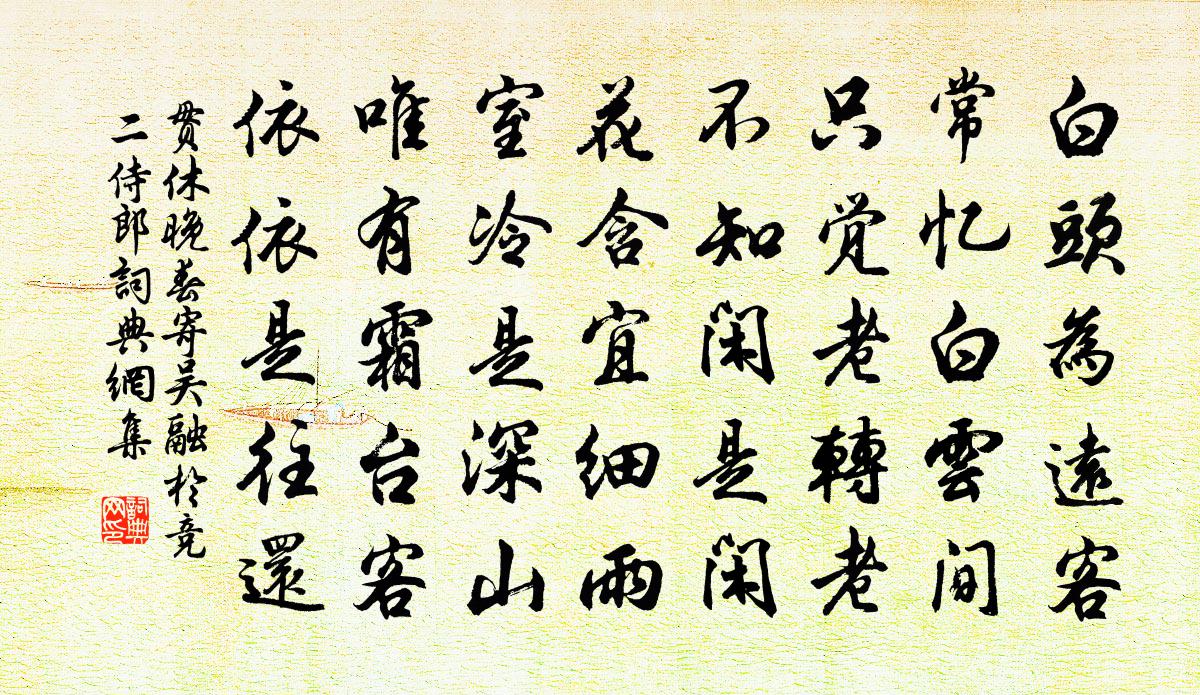 白頭為遠客
常忆白雲间
只觉老轉老
不知闲是闲
花含宜细雨
室冷是深山
唯有霜台客
依依是往還
贯休晚春寄吴融於竞
二侍郎詞典網集
詞典网印